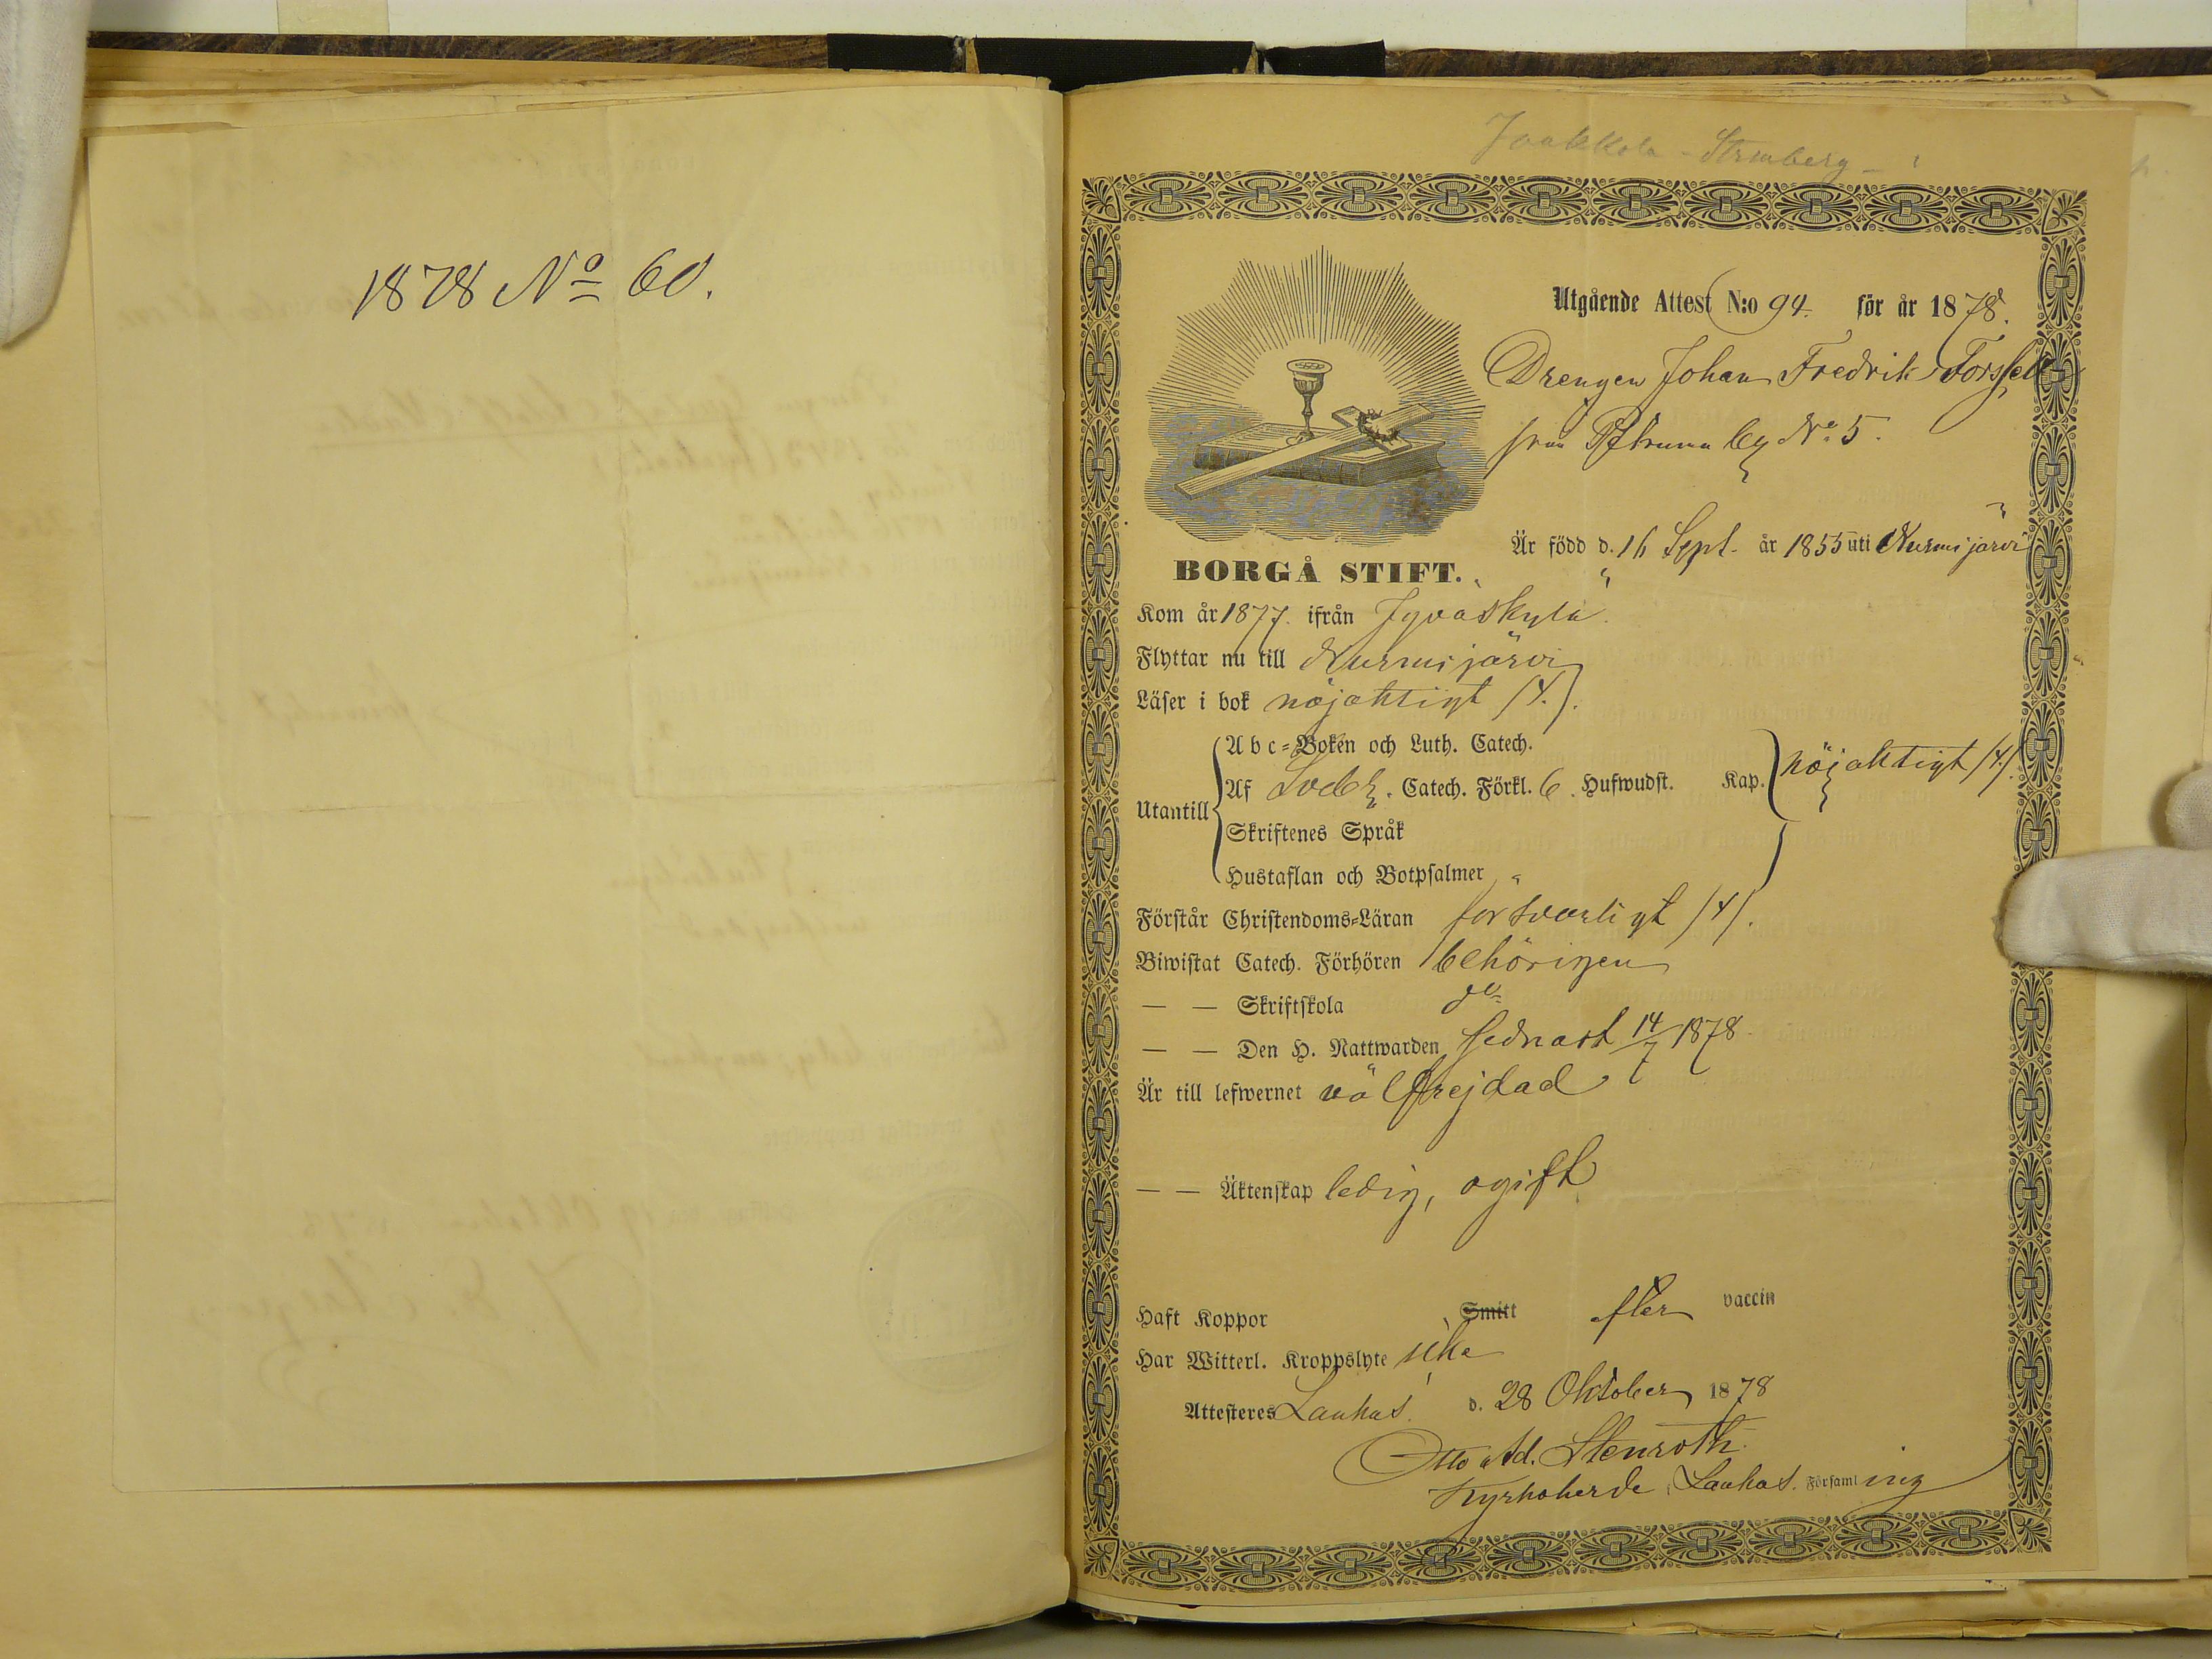 1878 Nº 60.
Jaakkola - Strmberg -
Utgående Attest N:o 94. för år 1878.
Drengen Johan Fredrik Forssell
från by Nº 5.
Är född d. 16 Sept. år 1855 uti Nurmijärvi
BORGÅ STIFT.
Kom år 1877. ifrån Jyväskylä.
Flyttar nu till Nurmijärvi
Läser i bok nöjaktigt /4/.
Abc-Boken och Luth. Catech.
Utantill Af Sveb. Catech. Förkl. 6. Hufwudst. Kap. nöjaktigt /4/.
Skriftenes Språk
Hustaflan och Botpsalmer
Förstår Christendoms-Läran försvarligt /4/.
Biwistat Catech. Förhören behörigen
— — Skriftskola do
— — Den H. Nattwarden sednast 14/7 1878
Är till lefwernet välfrejdad
— — Äktenskap ledig, ogift
Haft Koppor Smitt efter vaccin
Har Witterl. Kroppslyte icke
Attesteres Laukas. d. 28 Oktober 1878
Otto Ad. Stenroth.
Kyrkoherde i Laukas. Församling